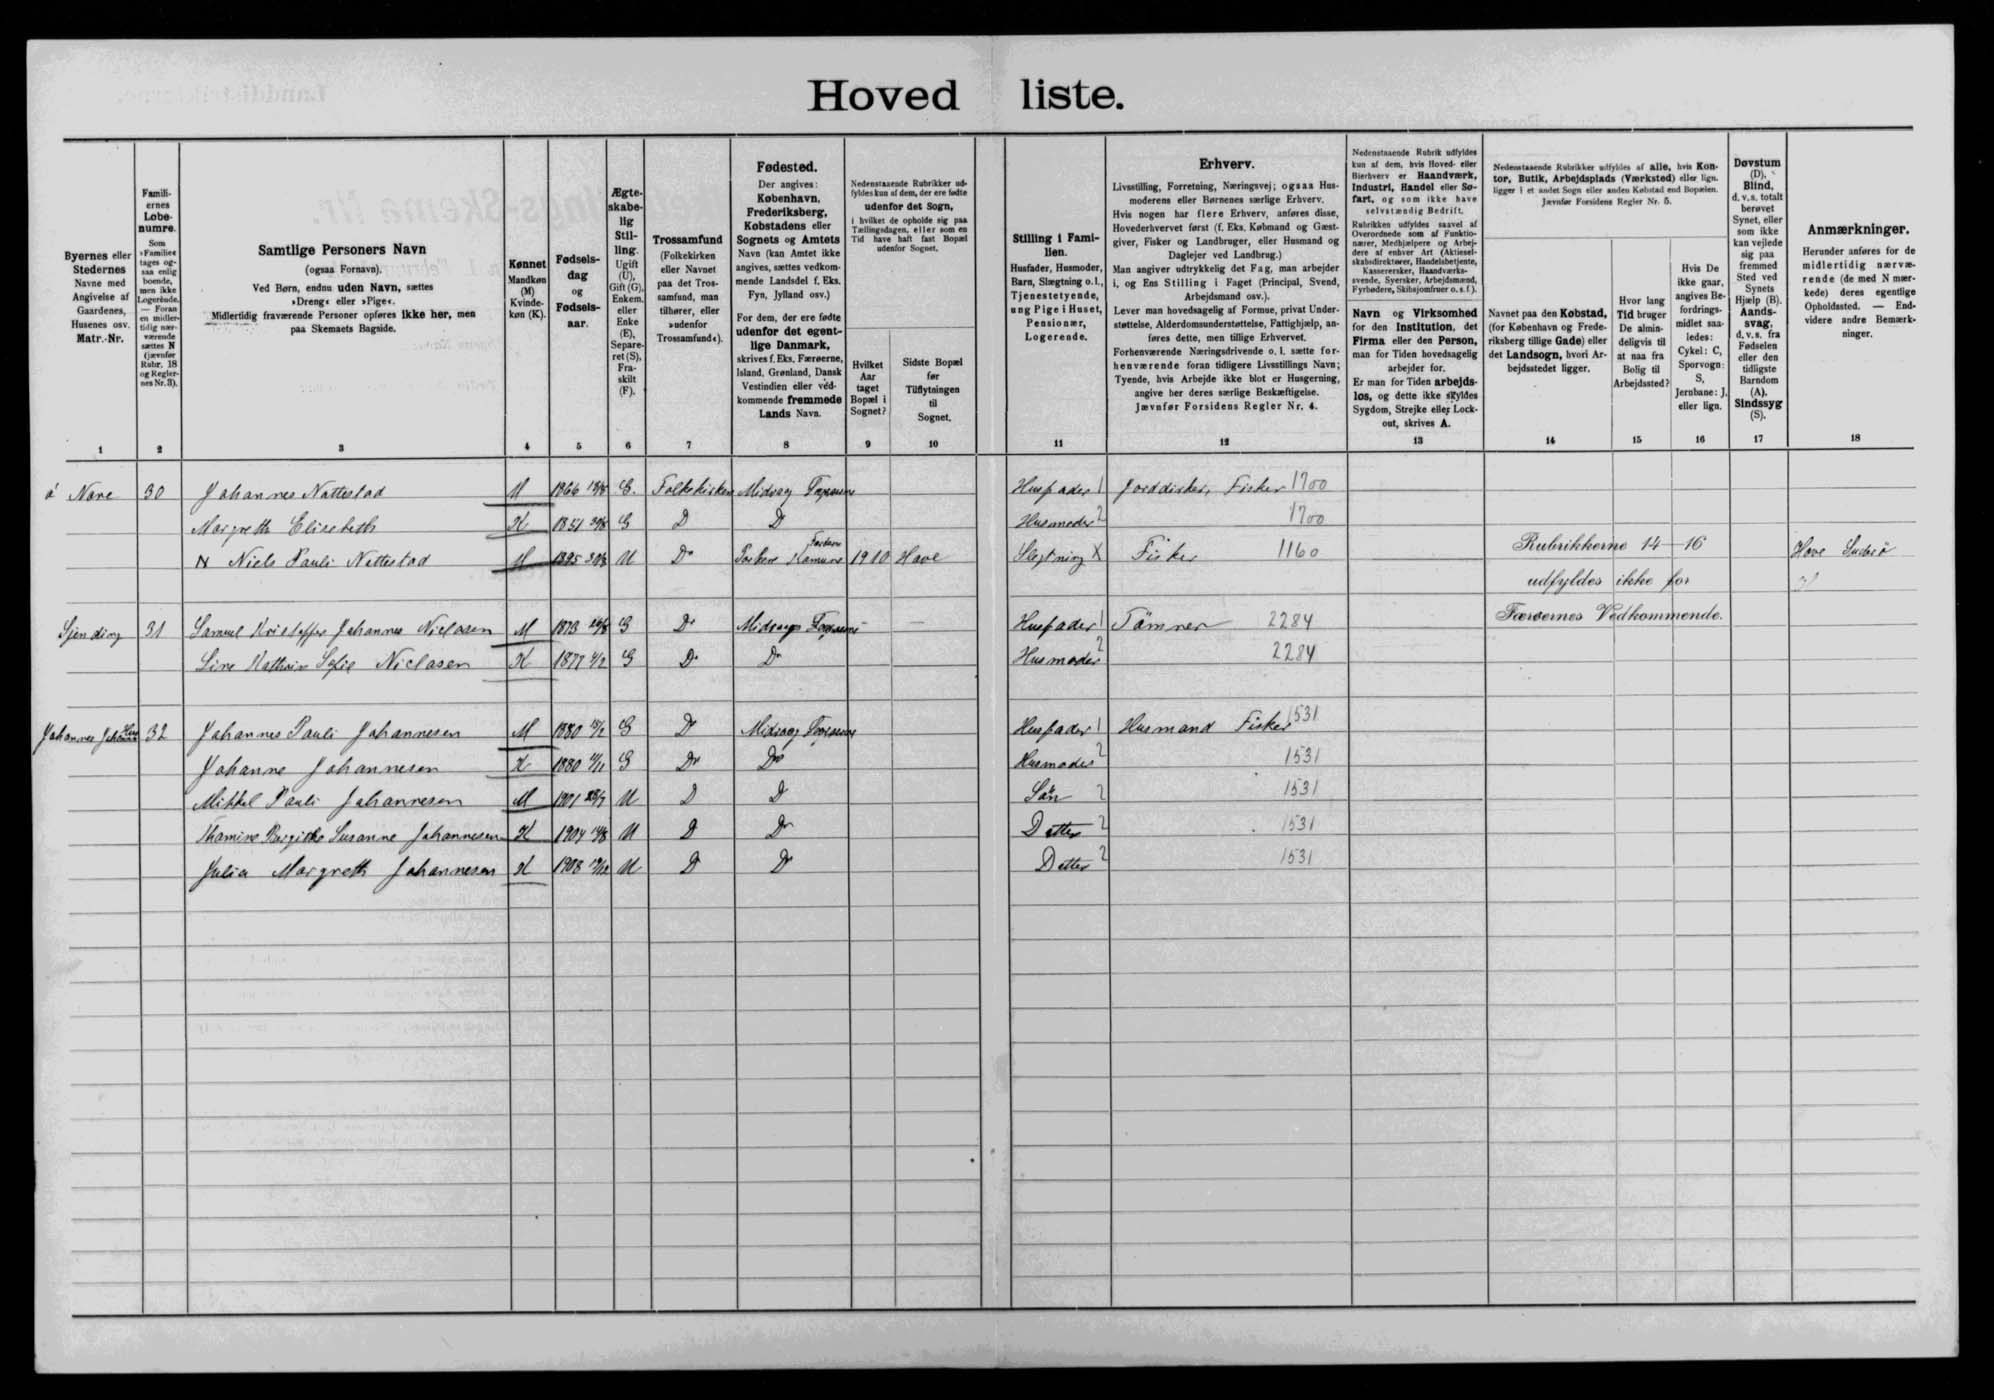 Hoved liste.
Byernes eller Stedernes Navne med Angivelse af Gaardenes, Husenes osv. Matr.-Nr.
Familiernes Løbenumre. Som »Familie« tages ogsaa enlig boende, men ikke Logerende. — Foran en midlertidig nærværende sættes N (jævnfør Rubr. 18 og Reglernes Nr. 3).
Samtlige Personers Navn
(ogsaa Fornavn).
Ved Børn, endnu uden Navn, sættes
»Dreng« eller »Pige«.
Midlertidig fraværende Personer opføres ikke her, men
paa Skemaets Bagside.
Kønnet Mandkøn (M) Kvindekøn (K).
Fødselsdag og Fødselsaar.
Ægteskabelig Stilling. Ugift (U), Gift (G), Enkem. eller Enke (E), Separeret (S), Fraskilt (F).
Trossamfund (Folkekirken eller Navnet paa det Trossamfund, man tilhører, eller »udenfor Trossamfund«).
Fødested.
Der angives: København, Frederiksberg, Købstadens eller Sognets og Amtets Navn (kan Amtet ikke angives, sættes vedkommende Landsdel f. Eks. Fyn, Jylland osv.)
For dem, der ere fødte udenfor det egentlige Danmark, skrives f. Eks. Færøerne, Island, Grønland, Dansk Vestindien eller vedkommende fremmede Lands Navn.
Nedenstaaende Rubrikker udfyldes kun af dem, der ere fødte udenfor det Sogn, i hvilket de opholde sig paa Tællingsdagen, eller som en Tid have haft fast Bopæl udenfor Sognet.
Hvilket Aar taget Bopæl i Sognet?
Sidste Bopæl før Tilflytningen til Sognet.
Stilling i Familien.
Husfader, Husmoder, Barn, Slægtning o. l., Tjenestetyende, ung Pige i Huset, Pensionær, Logerende.
Erhverv.
Livsstilling, Forretning, Næringsvej; ogsaa Husmoderens eller Børnenes særlige Erhverv.
Hvis nogen har flere Erhverv, anføres disse, Hovederhvervet først (f. Eks. Købmand og Gæstgiver, Fisker og Landbruger, eller Husmand og Daglejer ved Landbrug.)
Man angiver udtrykkelig det Fag, man arbejder i, og Ens Stilling i Faget (Principal, Svend, Arbejdsmand osv.).
Lever man hovedsagelig af Formue, privat Understøttelse, Alderdomsunderstøttelse, Fattighjælp, anføres dette, men tillige Erhvervet.
Forhenværende Næringsdrivende o. l. sætte forhenværende foran tidligere Livsstillings Navn; Tyende, hvis Arbejde ikke blot er Husgerning, angive her deres særlige Beskæftigelse.
Jævnfør Forsidens Regler Nr. 4.
Nedenstaaende Rubrik udfyldes kun af dem, hvis Hoved- eller Bierhverv er Haandværk, Industri, Handel eller Søfart, og som ikke have selvstændig Bedrift.
Rubrikken udfyldes saavel af Overordnede som af Funktionærer, Medhjælpere og Arbejdere af enhver Art (Aktieselskabsdirektører, Handelsbetjente, Kasserersker, Haandværkssvende, Syersker, Arbejdsmænd, Fyrbødere, Skibsjomfruer o. s. f.).
Navn og Virksomhed for den Institution, det Firma eller den Person, man for Tiden hovedsagelig arbejder for.
Er man for Tiden arbejdsløs, og dette ikke skyldes Sygdom, Strejke eller Lockout, skrives A.
Nedenstaaende Rubrikker udfyldes af alle, hvis Kontor, Butik, Arbejdsplads (Værksted) eller lign. ligger i et andet Sogn eller anden Købstad end Bopælen.
Jævnfør Forsidens Regler Nr. 5.
Navnet paa den Købstad, (for København og Frederiksberg tillige Gade) eller det Landsogn, hvori Arbejdsstedet ligger.
Hvor lang Tid bruger De almindeligvis til at naa fra Bolig til Arbejdssted?
Hvis De ikke gaar, angives Befordringsmidlet saaledes: Cykel: C, Sporvogn: S, Jernbane: J, eller lign.
Døvstum (D), Blind, d. v. s. totalt berøvet Synet, eller som ikke kan vejlede sig paa fremmed Sted ved Synets Hjælp (B). Aandssvag, d. v. s. fra Fødselen eller den tidligste Barndom (A). Sindssyg (S).
Anmærkninger.
Herunder anføres for de midlertidig nærværende (de med N mærkede) deres egentlige Opholdssted. — Endvidere andre Bemærkninger.
1 2 3 4 5 6 7 8 9 10 11 12 13 14 15 16 17 18
30 Johannes Nattestad M 1866 G. Folkekirken Midvaag Husfader 1 Fisker 1700
Margreth Elisabeth K 1851 G D D Husmoder 2 1700
N Niels Pauli Nattestad M 1895 U Do 1910 Slegtning X Fisker 1160 Rubrikkerne 14—16
udfyldes ikke for
31 Samuel Kristoffer Johannes Niclasen M 1873 G Do Midvaag Husfader 1 Tömrer 2284 Færøernes Vedkommende.
Sofie Niclasen K 1877 G Do Do Husmoder 2 2284
32 Johannes Pauli Johannesen M 1880 G Do Midvaag Husfader 1 Husmand Fisker 1531
Johanne Johannesen K 1880 G Do Do Husmoder 2 1531
Mikkel Pauli Johannesen M 1901 U D D Sön 2 1531
Susanne Johannesen K 1904 U D Do Datter 2 1531
Julia Margreth Johannesen K 1908 U D Do Datter 2 1531